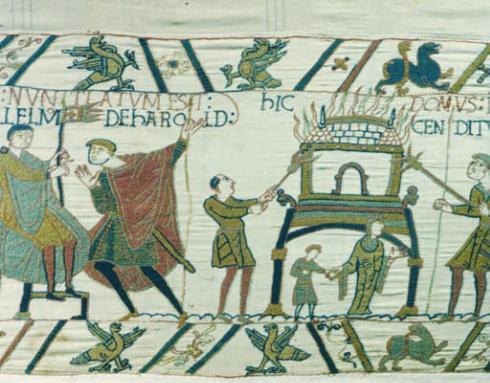 : NUNTIATUM EST :
LELM DE HAROLD :
hIC DOMUS : I
CENDITU